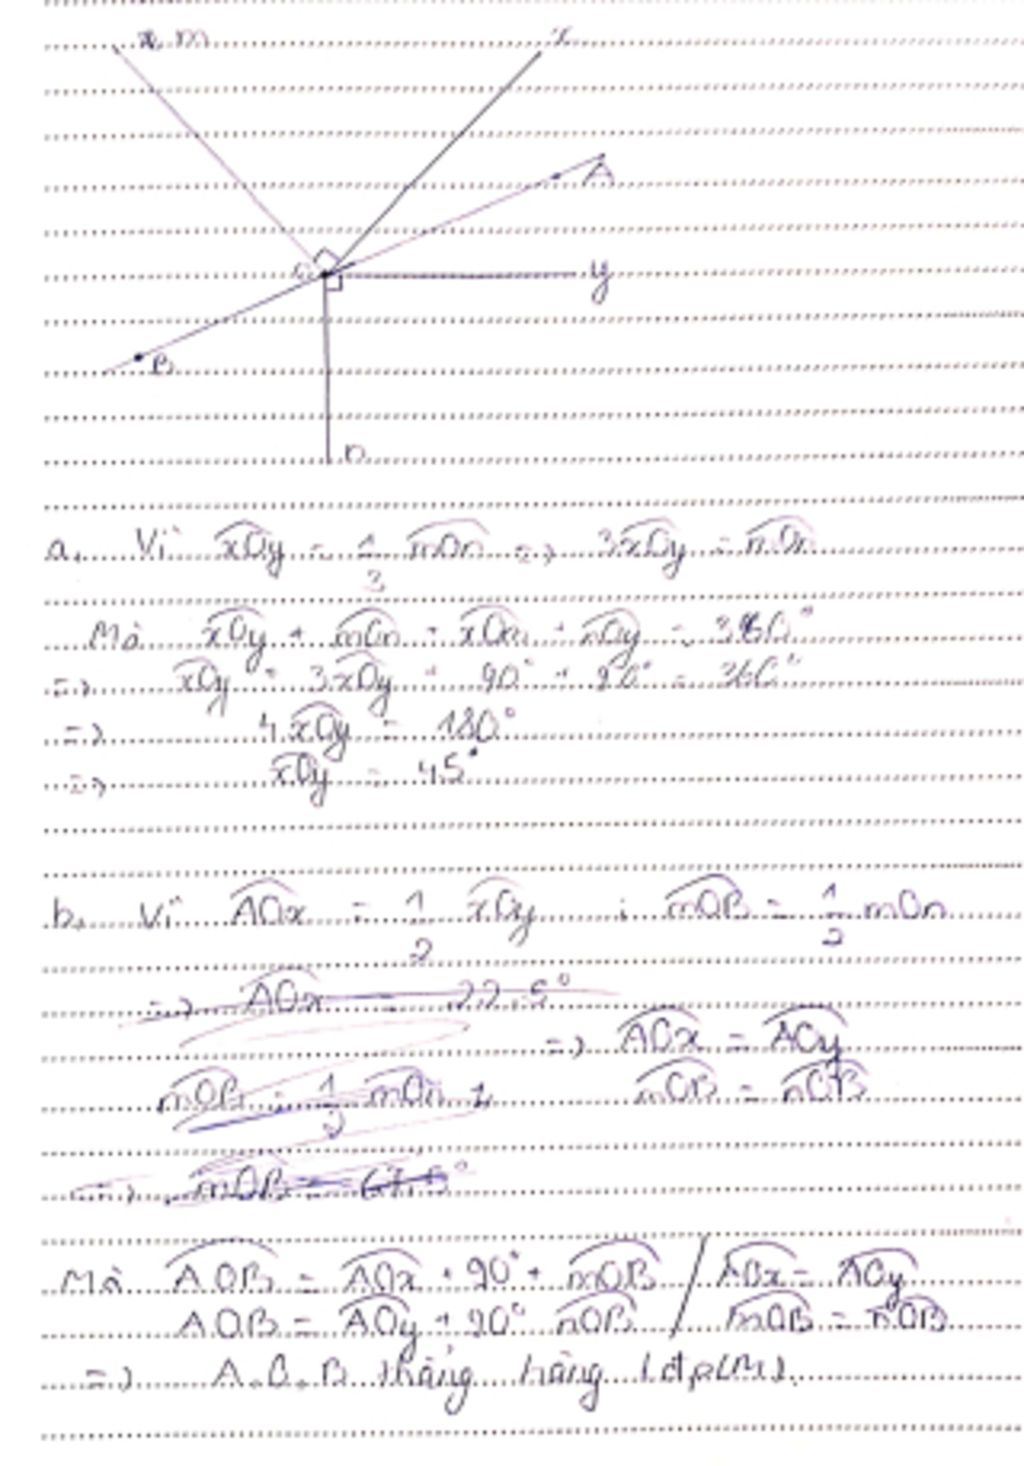 m x
A
O y
B
n
a, Vì xOy = 1/3 mOn => 3xOy = mOn
Mà xOy + mOn + xOm + nOy = 360°
=> xOy + 3xOy + 90° + 90° = 360°
=> 4xOy = 180°
=> xOy = 45°
b, Vì AOx = 1/2 xOy ; mOB = 1/2 mOn
=> AOx = 22,5°
=> AOx = AOy
mOB = 1/2 mOn
mOB = nOB
=> mOB = 67,5°
Mà AOB = AOx + 90° + mOB / AOx = AOy
AOB = AOy + 90° nOB / mOB = nOB
=> A, O, B thẳng hàng (đpcm).